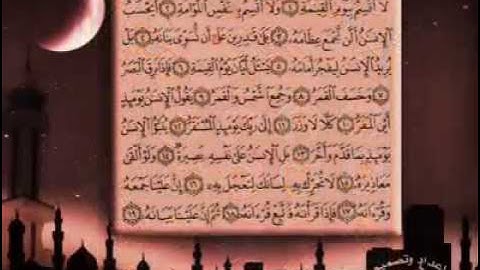 لَآ أُقْسِمُ بِيَوْمِ ٱلْقِيَٰمَةِ ١ وَلَآ أُقْسِمُ بِٱلنَّفْسِ ٱللَّوَّامَةِ ٢ أَيَحْسَبُ
ٱلْإِنسَٰنُ أَلَّن نَّجْمَعَ عِظَامَهُۥ ٣ بَلَىٰ قَٰدِرِينَ عَلَىٰٓ أَن نُّسَوِّىَ بَنَانَهُۥ ٤ بَلْ
يُرِيدُ ٱلْإِنسَٰنُ لِيَفْجُرَ أَمَامَهُۥ ٥ يَسْـَٔلُ أَيَّانَ يَوْمُ ٱلْقِيَٰمَةِ ٦ فَإِذَا بَرِقَ ٱلْبَصَرُ
٧ وَخَسَفَ ٱلْقَمَرُ ٨ وَجُمِعَ ٱلشَّمْسُ وَٱلْقَمَرُ ٩ يَقُولُ ٱلْإِنسَٰنُ يَوْمَئِذٍ
أَيْنَ ٱلْمَفَرُّ ١٠ كَلَّا لَا وَزَرَ ١١ إِلَىٰ رَبِّكَ يَوْمَئِذٍ ٱلْمُسْتَقَرُّ ١٢ يُنَبَّؤُا۟ ٱلْإِنسَٰنُ
يَوْمَئِذٍۭ بِمَا قَدَّمَ وَأَخَّرَ ١٣ بَلِ ٱلْإِنسَٰنُ عَلَىٰ نَفْسِهِۦ بَصِيرَةٌ ١٤ وَلَوْ أَلْقَىٰ
مَعَاذِيرَهُۥ ١٥ لَا تُحَرِّكْ بِهِۦ لِسَانَكَ لِتَعْجَلَ بِهِۦٓ ١٦ إِنَّ عَلَيْنَا جَمْعَهُۥ
وَقُرْءَانَهُۥ ١٧ فَإِذَا قَرَأْنَٰهُ فَٱتَّبِعْ قُرْءَانَهُۥ ١٨ ثُمَّ إِنَّ عَلَيْنَا بَيَانَهُۥ ١٩
إعداد وتصميم